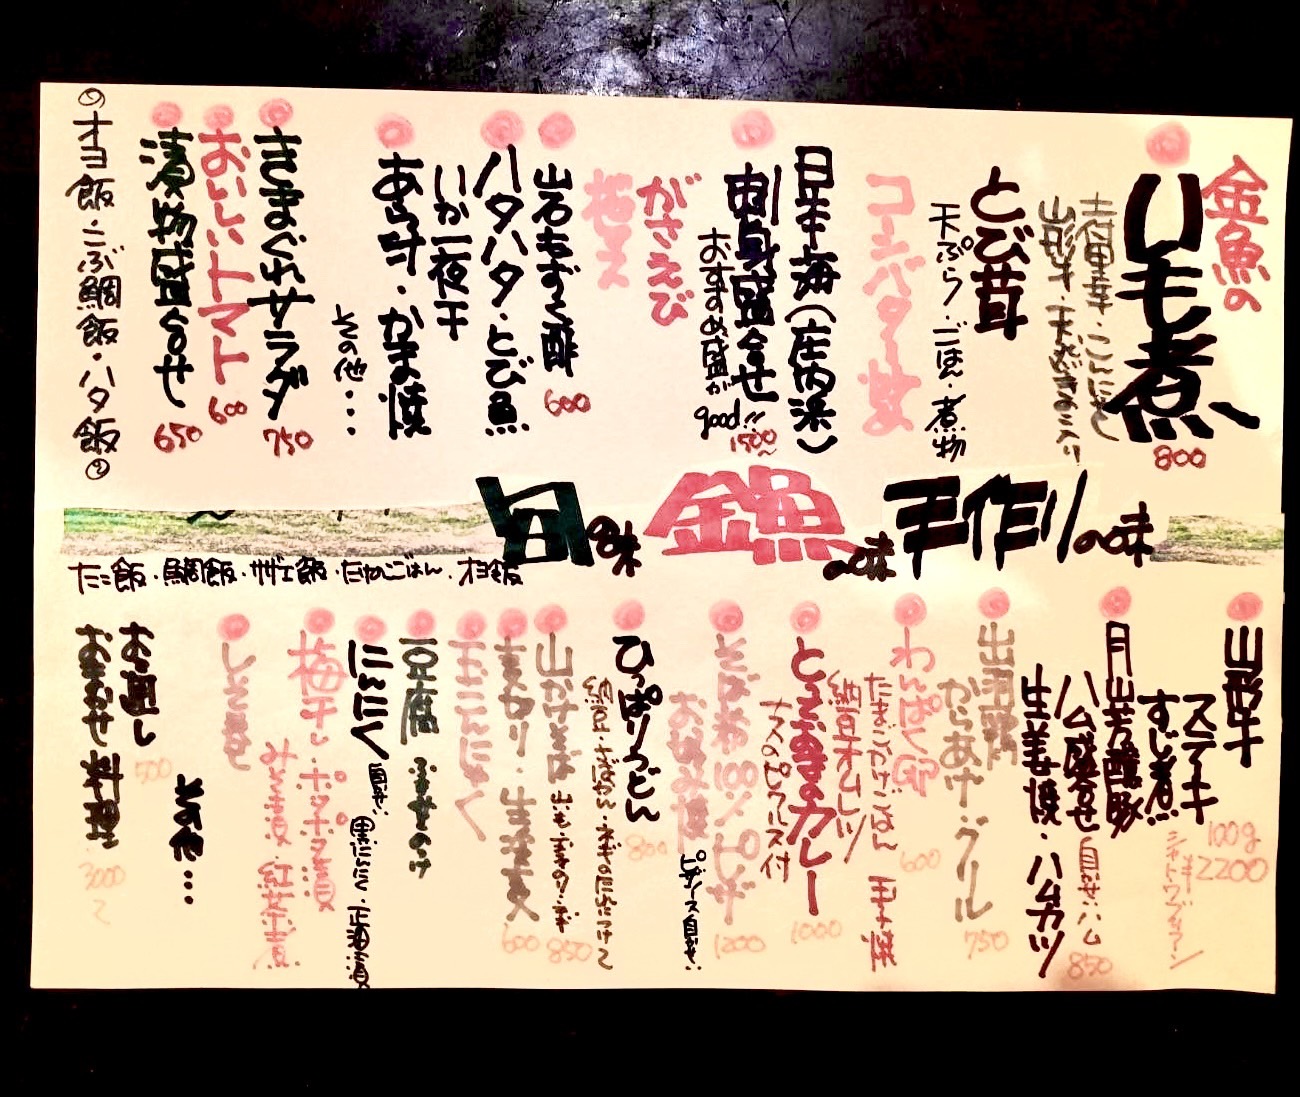 金魚の
いも煮
800
山形牛・
とび茸
天ぷら・ごはん・煮物
日本海(庄内浜)
刺身盛合せ
おすすめ盛が
good!!
1500~
がさえび
岩もずく酢
600
ハタハタ・とび魚
いか一夜干
あら汁・かま焼
その他…
きまぐれサラダ
750
おいしいトマト
600
漬物盛合せ
650
オヨ飯・こぶ鯛飯・ハタ飯
旬の味
金魚の味
手作りの味
たこ飯・鯛飯・サザエ飯・たけのこごはん・オヨ飯
山形牛
ステキ
100g
2200
すじ煮
月山芳醸豚
ハム盛合せ
自家製ハム
850
生姜焼・ハムカツ
出羽鶏
からあげ・グリル
750
わんぱく卵
600
たまごかけごはん
玉子焼
納豆オムレツ
とっておきのカレー
1000
ナスのピクルス付
そば粉100%ピザ
1200
お好み焼
ピザソース自家製
ひっぱりうどん
800
納豆・さばかん・ネギのたれにつけて
山かけそば
850
麦きり・生蕎麦
600
玉こんにゃく
豆腐
にんにく
自家製
黒にんにく・正油漬
梅干し・ポタポタ漬
みそ漬・紅葉漬
しそ巻せ
500
その他…
お通し
おまかせ料理
3000